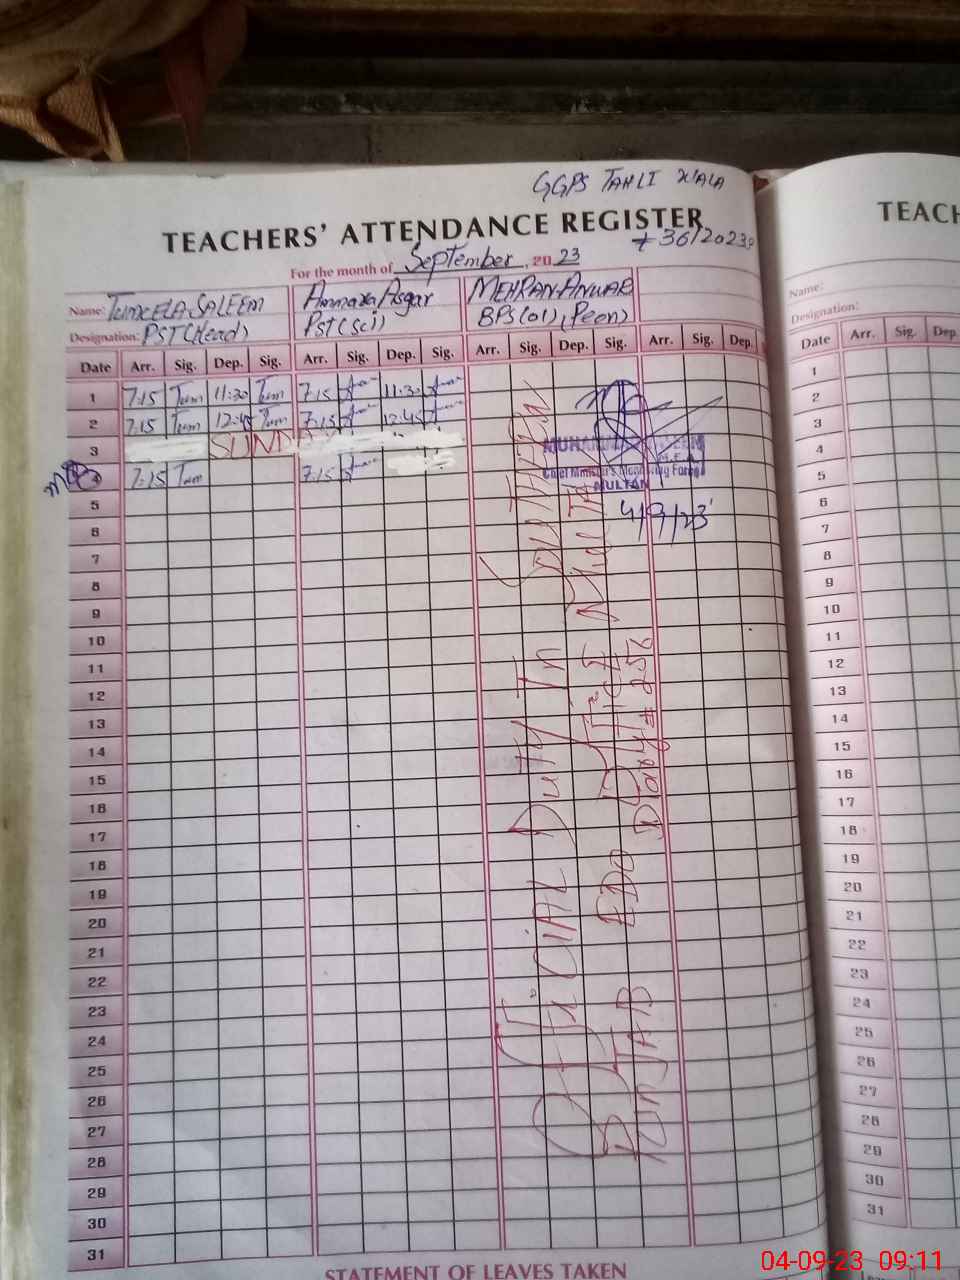 GGPS TAHLI WALA
TEACHERS' ATTENDANCE REGISTER
# 36/2023
For the month of September, 2023
Name: SALEEM Ammara Asgar MEHRAN ANWAR
Designation: PST (Head) PST (Sci) BPS (01) (Peon)
Date Arr. Sig. Dep. Sig. Arr. Sig. Dep. Sig. Arr. Sig. Dep. Sig. Arr. Sig. Dep.
1 7:15 Tum 11:30 Tum 7:15 11:30
2 7:15 Tum 12:45 Tum 7:15 12:45
3 SUNDAY
7:15 Tum 7:15
5
6
7
8
9
10
11
12
13
14
15
16
17
18
19
20
21
22
23
24
25
26
27
28
29
30
31
STATEMENT OF LEAVES TAKEN
MUHAMMAD
M.E.A
Chief Minister's Monitoring Force
MULTAN
4/9/23
OFFICIAL Duty In
DDO OFFICE
PUNJAB Diary # 256
TEACH
Name:
Designation:
Date Arr. Sig. Dep.
1
2
3
4
5
6
7
8
9
10
11
12
13
14
15
16
17
18
19
20
21
22
23
24
25
26
27
28
29
30
31
04-09-23 09:11